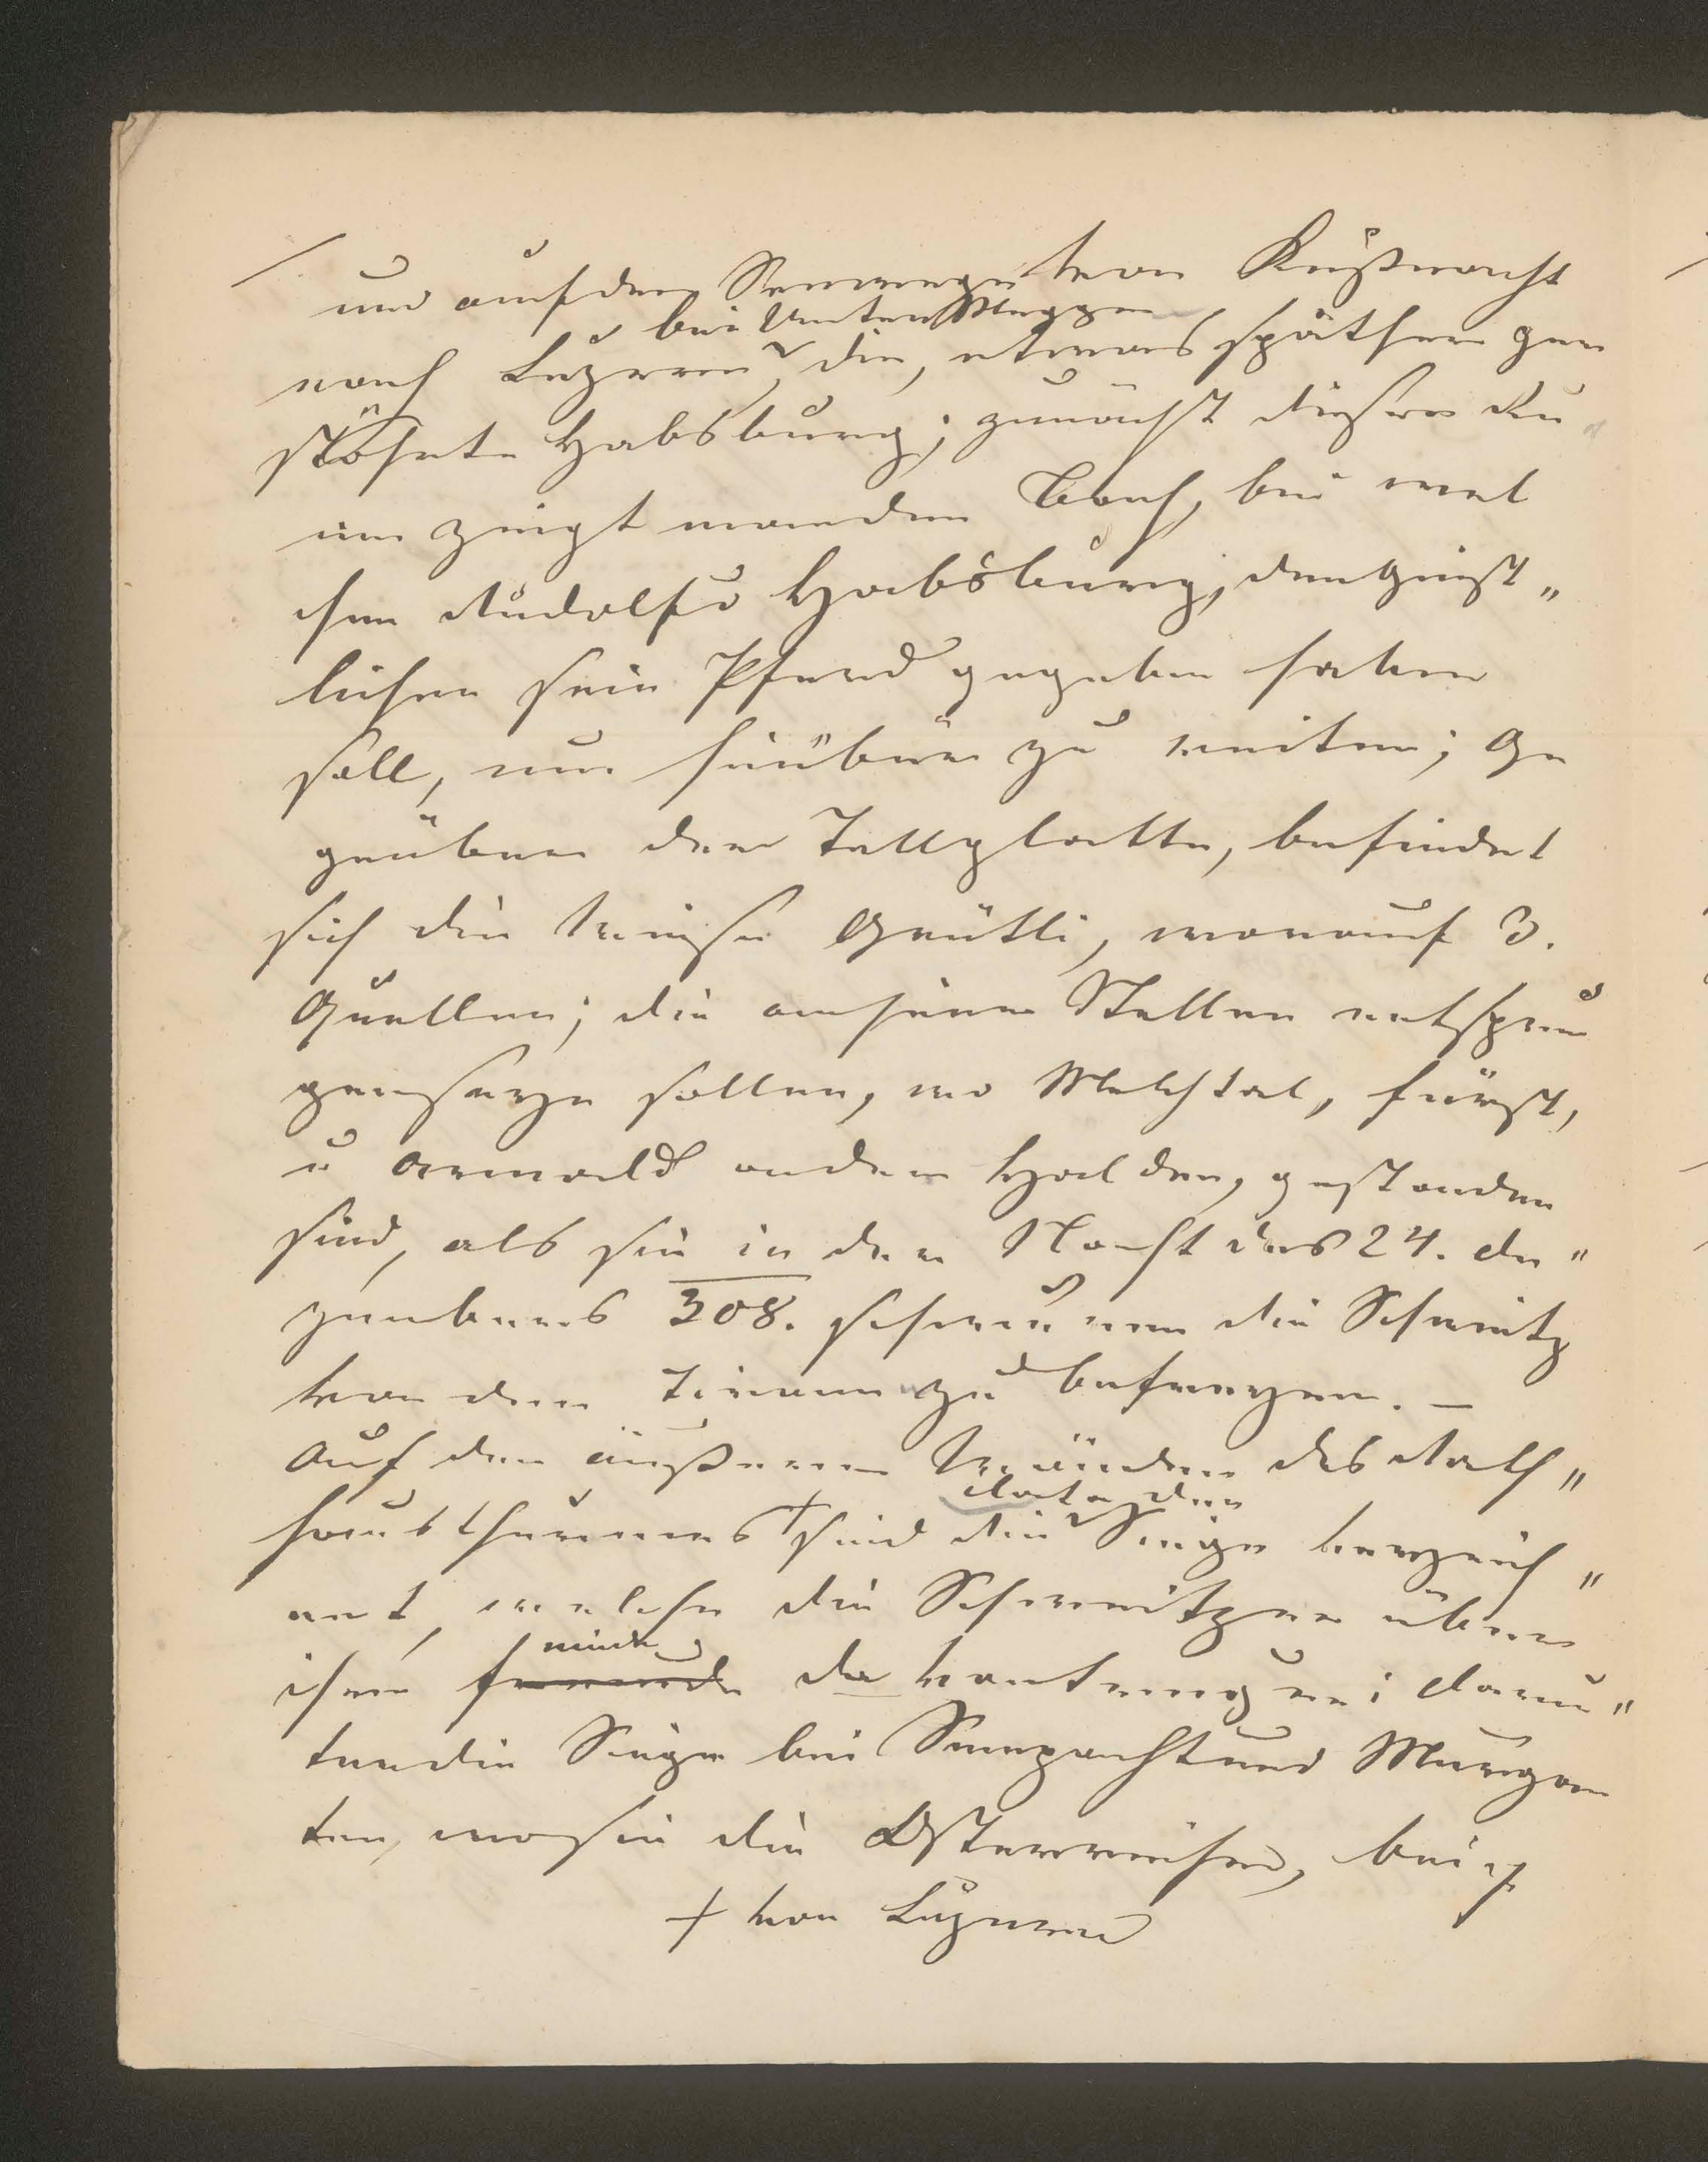 und auf dem Seewege von Küßnacht
bei Unter Meggen
nach Luzern, die, etwas späther zer
stöhrte Habsburg; zunächst dieser Ru
ine zeigt man den Bach, bei wel
chem Rudolf v Habsburg, dem Geist„
lichen sein Pferd gegeben haben
soll, um hinüber zu reiten; Ge
genüber der Tellplatte, befindet
sich die Wiese Grütli, worauf 3.
Quellen; die an jenen Stellen entsprun
gen sein sollen, wo Melchtal, Fürst,
u Arnold an der Halden, gestanden
sind, als sie in der Nacht des 24. De„
zembers 308. schwuren die Schweitz
von den Tirannen zu befreyen. –
Auf den äußeren Wänden des Rath„
Data der
hausthurmes + sind die Siege verzeich„
net, welche die Schweitzer über
ihre Feinde davontrugen; darun„
ter die Siege bei Sempach und Morgar
ten, wo sie die Österreicher, bei
+ von Luzern